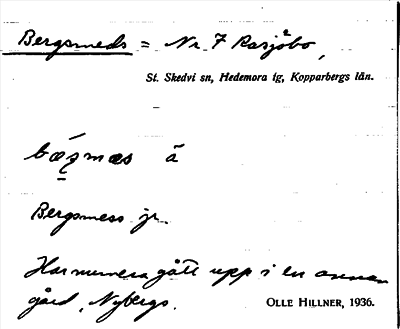 Bergsmeds = Nr 7 Rasjöbo,
St. Skedvi sn, Hedemora tg, Kopparbergs län.
bærmæs å
Bergsmess jr.
Har numera gått upp i en annan
gård, Nybergs.
OLLE HILLNER, 1936.